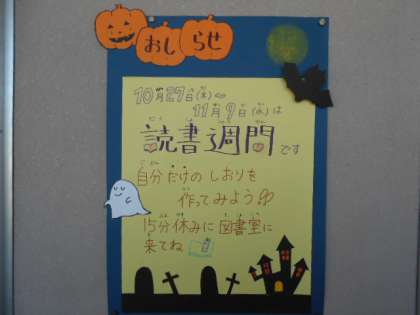 おしらせ
10月27日(木)〜
11月9日(水)は
読書週間です
自分だけのしおりを
作ってみよう
15分休みに図書室に
来てね